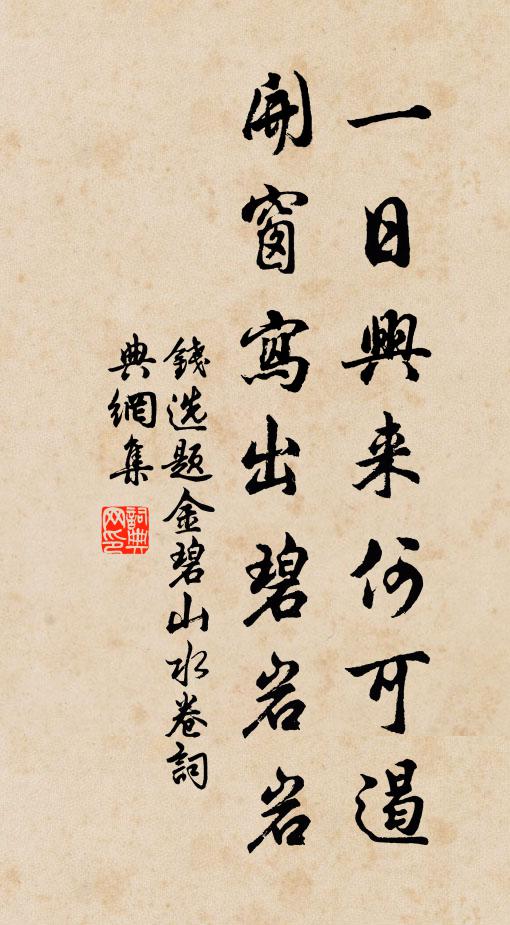 一日興来何可遏
開窗寫出碧岩岩
錢选題金碧山水卷詞
典網集
詞典網印